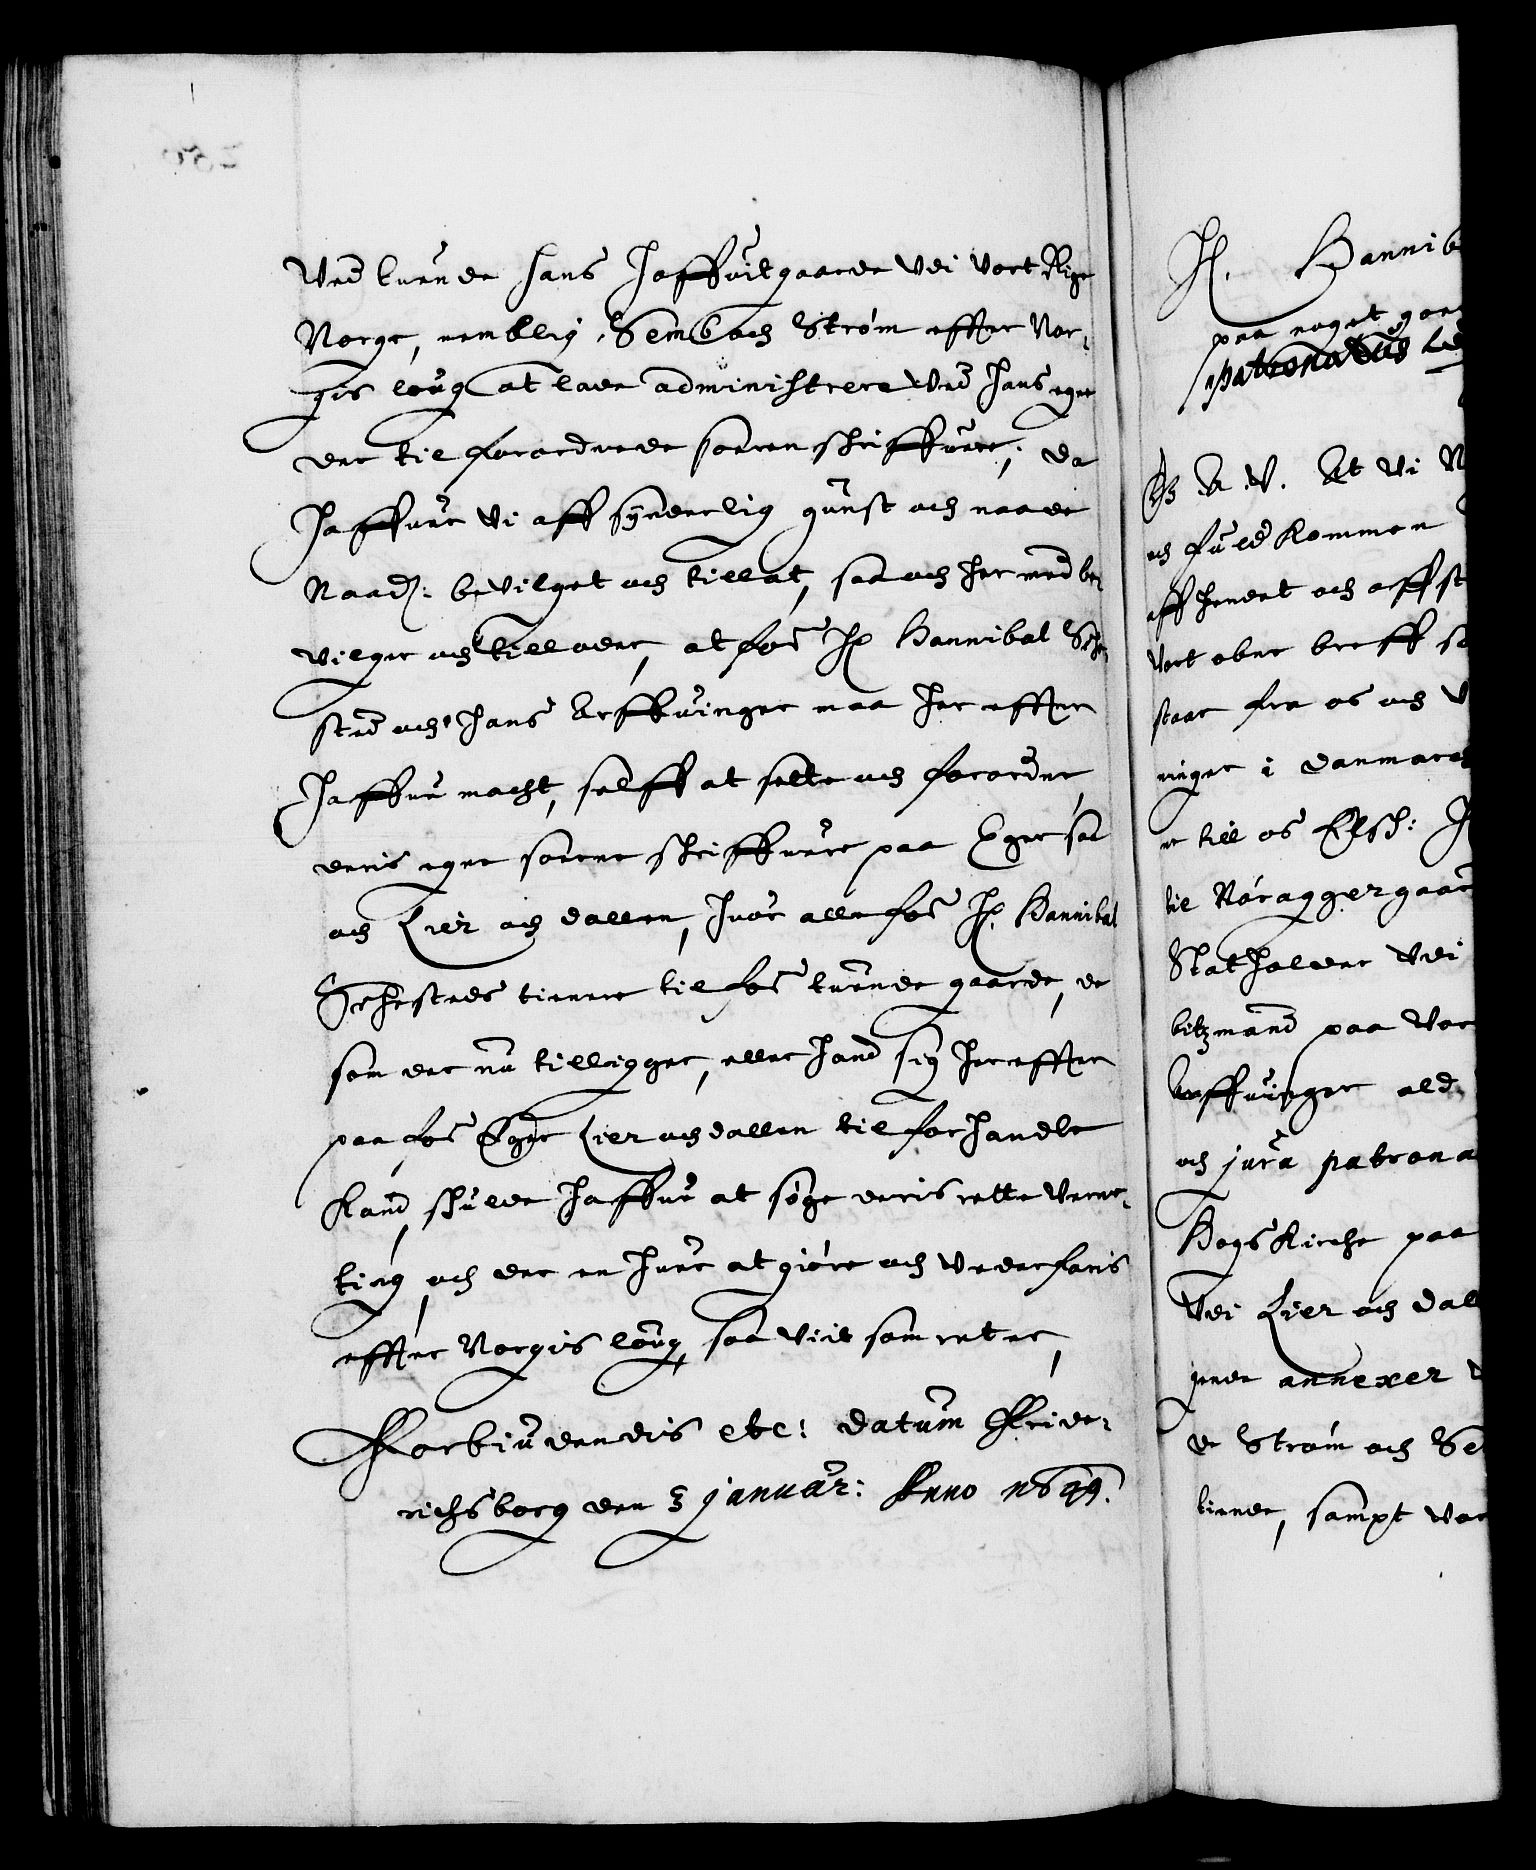 ved tuende hans Hoffuitgaarde Udi vort Rige
Norge, nemblig Semb och Strøm effter Nor-
gis loug at lade administrere ved hans egne
der til forordnede sorenschriffuere, da
haffuer vi aff synderlig gunst och naade
Naad: bevilget och tillat, saa och her med be-
vilger och tillader, at for: Hr Hannibal Sehe
sted och hans Arffuinger maa her effter
haffue macht, selff at sette och forordne
deris egne sorne schriffuere paa Eger saa
och Lier och dallen, huor alle for: Hr. Hannibal
Sehesteds tienere til for: tuende gaarde, de
som der nu tilligger, eller hand sig her effter
paa for: Eger Lier och dallen tilforhandle
kand, skulde haffue at søge deris rette Verne-
ting, och der en huer at giøre och vederfaris
effter Norgis loug, saa viit som ret er,
Forbiudendis etc: datum Fride-
richsborg den 3 januar: Anno 1649.
H. Hannib
paa noget
patronatus
C4 A. V. At vi
och fuldkommen
affhendt och affst
vort obne breff
staar fra os och
ninger i Danmarck
re till os Elsch:
til Nóraggergaar
Statholder Udi
bitzmand paa Vor
Arffuinger ald
och jura patrona
Hogs Kirche paa
Udi Lier och dal
gende annexer
de Strøm och Se
tiende, sampt vor